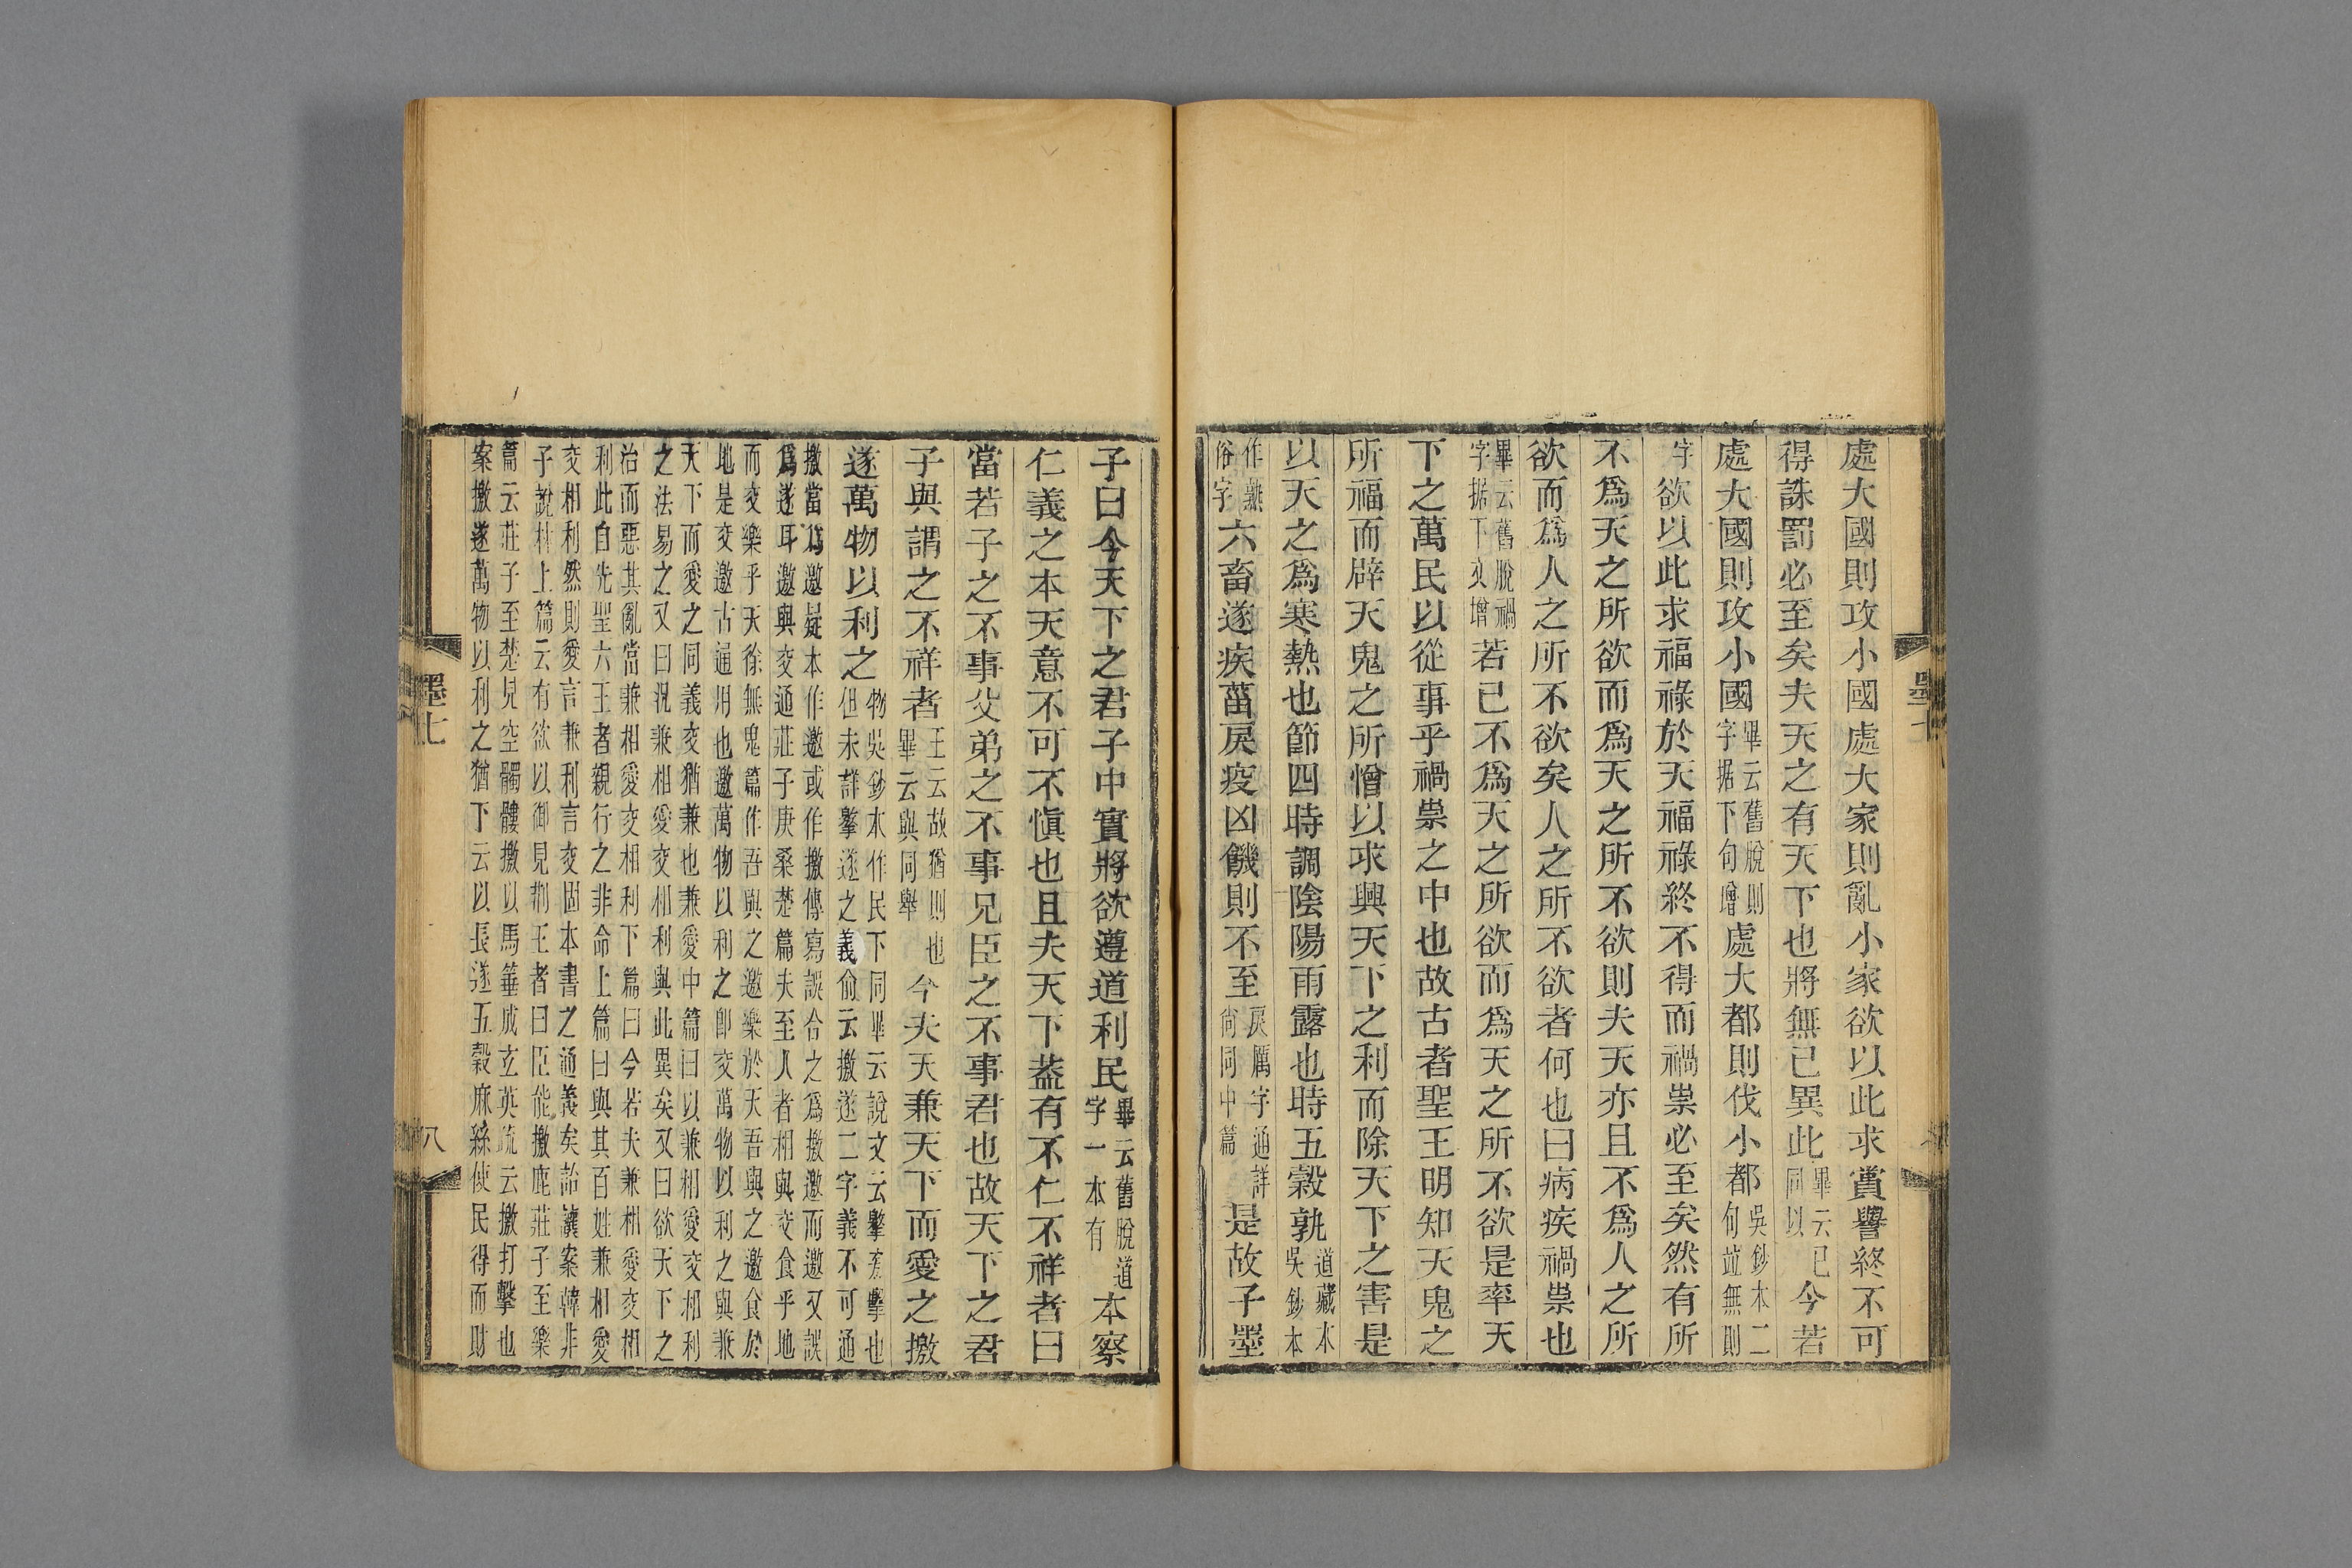 處大國則攻小國處大家則亂小家欲以此求賞譽終不可
得誅罰必至矣夫天之有天下也將無已異此畢云已同以今若
處大國則攻小國畢云舊脫則字据下句增處大都則伐小都吳鈔本二句竝無則
字欲以此求福祿於天福祿終不得而禍祟必至矣然有所
不爲天之所欲而爲天之所不欲則夫天亦且不爲人之所
欲而爲人之所不欲矣人之所不欲者何也曰病疾禍祟也
畢云舊脫禍字据下文增若已不爲天之所欲而爲天之所不欲是率天
下之萬民以從事乎禍祟之中也故古者聖王明知天鬼之
所福而辟天鬼之所憎以求興天下之利而除天下之害是
以天之爲寒熱也節四時調陰陽雨露也時五穀孰道藏本吳鈔本
作熟俗字六畜遂疾菑戾疫凶饑則不至戾厲字通詳尚同中篇是故子墨
子曰今天下之君子中實將欲遵道利民畢云舊脫道字一本有本察
仁義之本天意不可不慎也且夫天下葢有不仁不祥者曰
當若子之不事父弟之不事兄臣之不事君也故天下之君
子與謂之不祥者王云故猶則也畢云與同舉今夫天兼天下而愛之撽
遂萬物以利之物吳鈔本作民下同畢云說文云擊㫄擊也
但未詳擊遂之義俞云撽遂二字義不可通
撽當爲邀疑本作邀或作撽傳寫誤合之爲撽邀而邀又誤
爲遂耳邀與交通莊子庚桑楚篇夫至人者相與交食乎地
而交樂乎天徐無鬼篇作吾與之邀樂於天吾與之邀食於
地是交邀古通用也邀萬物以利之卽交萬物以利之與兼
天下而愛之同義交猶兼也兼愛中篇曰以兼相愛交相利
之法易之又曰況兼相愛交相利與此異矣又曰欲天下之
治而惡其亂當兼相愛交相利下篇曰今若夫兼相愛交相
利此自先聖六王者親行之非命上篇曰與其百姓兼相愛
交相利然則愛言兼利言交固本書之通義矣詒讓案韓非
子說林上篇云有欲以御見荆王者曰臣能撽鹿莊子至樂
篇云莊子至楚見空髑髏撽以馬箠成玄英疏云撽打擊也
案撽遂萬物以利之猶下云以長遂五穀麻絲使民得而財
墨七
八